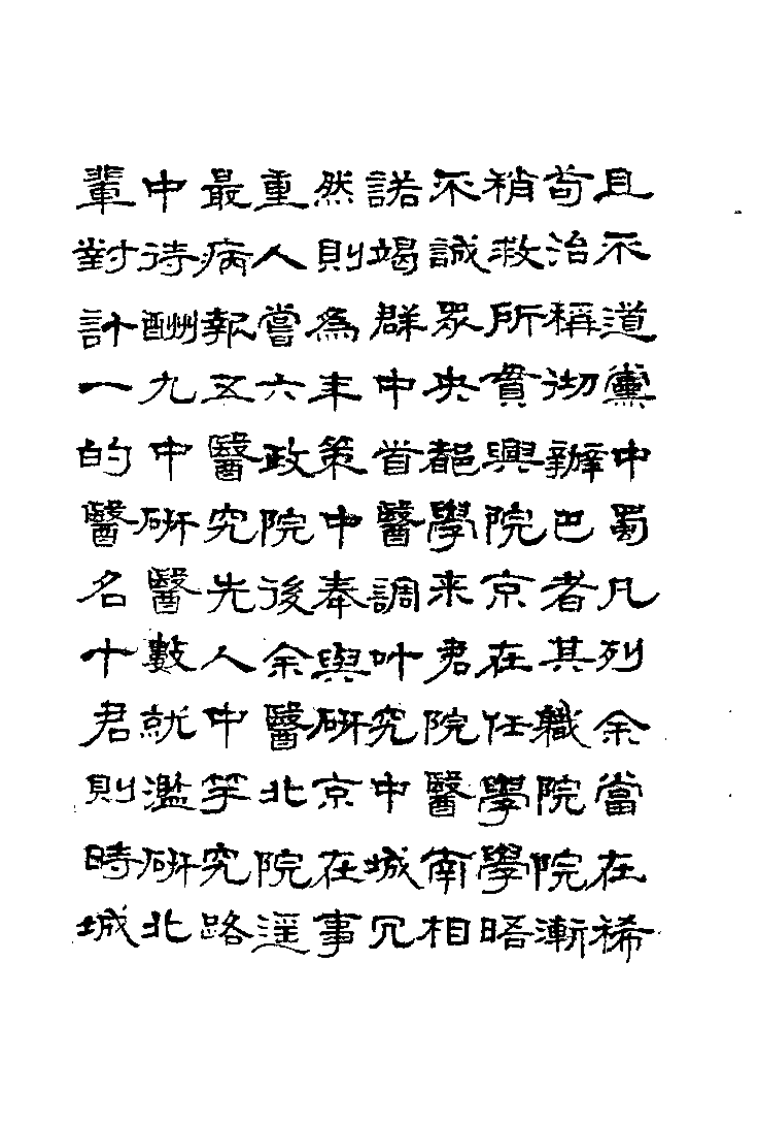 輩中最重然諾不稍苟且
對待病人則竭誠救治不
計酬報嘗為群眾所稱道
一九五六年中央貫彻黨
的中醫政策首都興辦中
醫研究院中醫學院巴蜀
名醫先後奉調来京者凡
十數人余與叶君在其列
君就中醫研究院任職余
則濫竽北京中醫學院當
時研究院在城南學院在
城北路遥事冗相晤漸稀